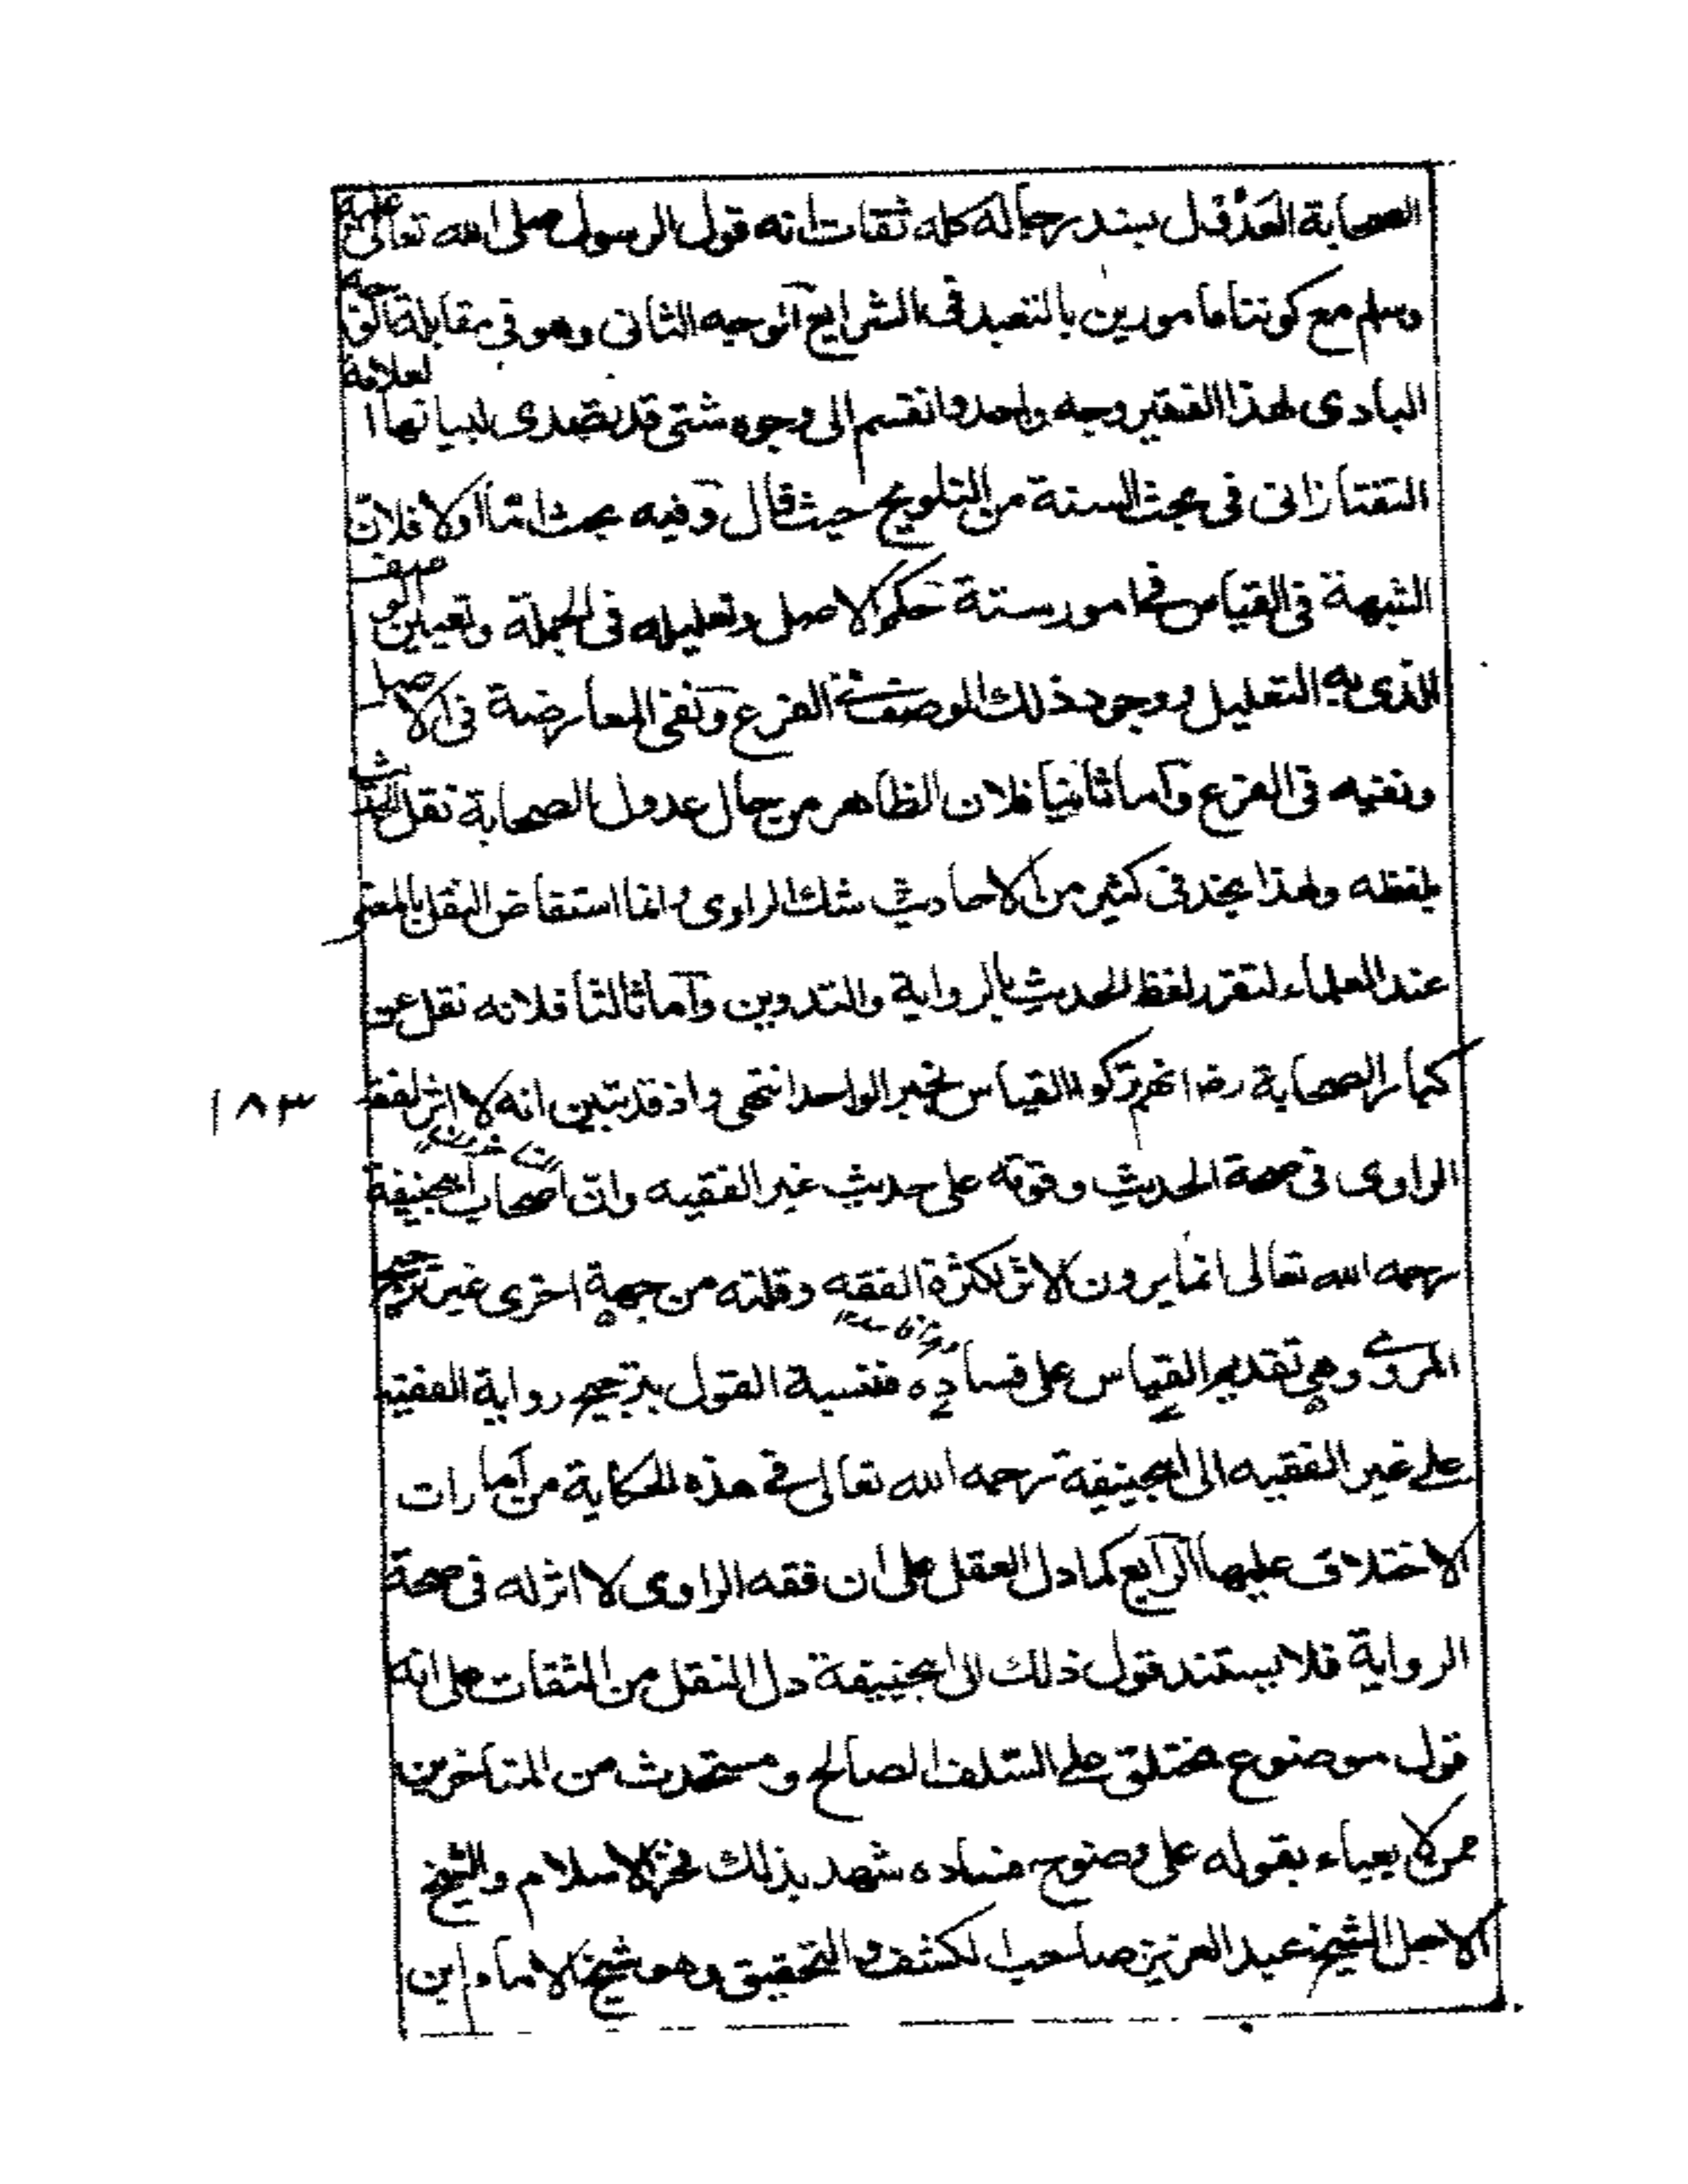 الصحابة العدول بسند رجاله كله ثقات انه قول الرسول صلى الله تعالى عليه
وسلم مع كوننا مامورين بالتعبد في الشرايع الوجيه الثاني وهو في مقابلة
البادى لهذا الفقير وجه واحد وانقسم الى وجوه شتى قد تصدى لبيانها العلامة
التفتازاني في بحث السنة من التلويح حيث قال وفيه بحث اما اولا فلان
الشبهة في القياس في امور ستة حكم الاصل وتعليله في الجملة وتعيين الوصف
الذى به التعليل ووجود ذلك الوصف في الفرع ونفى المعارضة في الاصل
ونفيه في الفرع واما ثانيا فلان الظاهر من حال عدول الصحابة نقل الحديث
بلفظه ولهذا يجد في كثير من الاحاديث شك الراوى وانما استفاض النقل بالمعنى
عند العلماء لتقرر لفظ الحديث بالرواية والتدوين واما ثالثا فلانه نقل عن
كبار الصحابة رضـ انهم تركوا القياس بخبر الواحد انتهى واذ قد تبين انه لا اثر لفقه
١٨٣
الراوى في صحة الحديث وقوته على حديث غير الفقيه وان اصحاب ابيحنيفة
رحمه الله تعالى انما يرون الاثر لكثرة الفقه وقلته من جهة اخرى غير ترجيح
المروى وهي تقديم القياس على فساده فنسبة القول بترجيح رواية الفقيه
على غير الفقيه الى ابيحنيفة رحمه الله تعالى في هذه الحكاية من امارات
الاختلاق عليها الرابع كما دل العقل على ان فقه الراوى لا اثر له في صحة
الرواية فلا يستند قول ذلك الى ابيحنيفة دل النقل من الثقات على انه
قول موضوع مختلق على السلف الصالح ومستحدث من المتاخرين
ممن لا يعباء بقوله على وضوح فساده شهد بذلك فخر الاسلام والشيخ
الاجل الشيخ عبد العزيز صاحب الكشف والتحقيق وهو شيخ الامام ابن